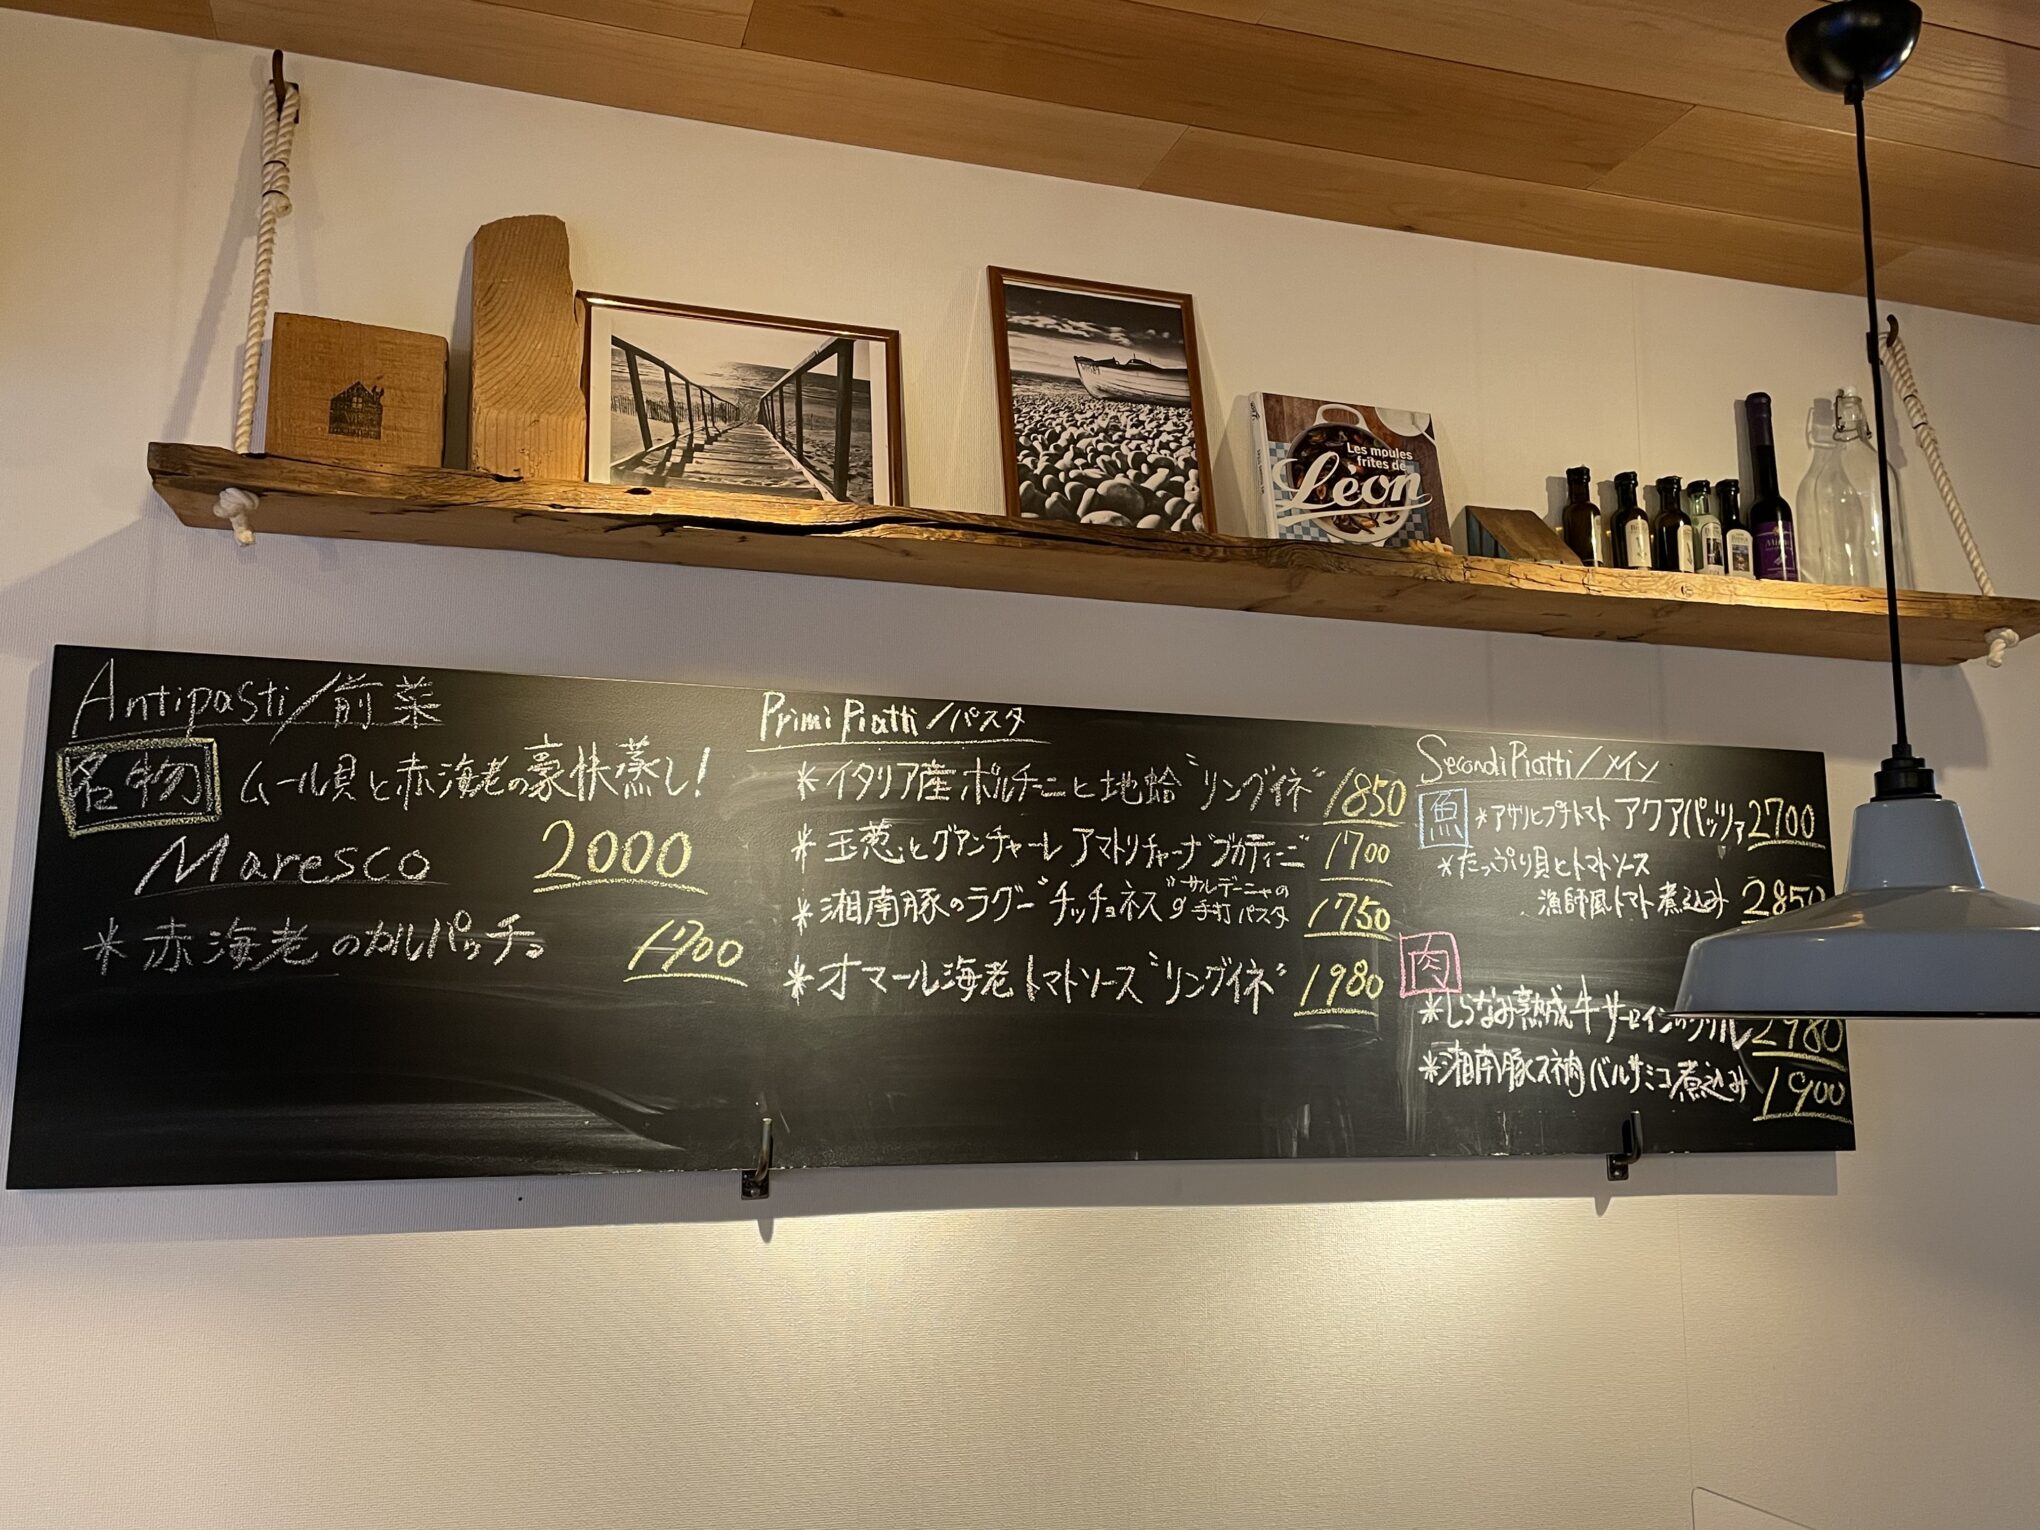 Antipasti/前菜
名物 ムール貝と赤海老の豪快蒸し!
Maresco 2000
*赤海老のカルパッチョ 1700
Primi Piatti/パスタ
*イタリア産ポルチーニと地蛤"リングイネ" 1850
*玉葱とグアンチャーレ アマトリチャーナ"ブカティーニ" 1700
*湘南豚のラグー"チッチョネスダ" サルデーニャの手打パスタ 1750
*オマール海老トマトソース"リングイネ" 1980
Secondi Piatti/メイン
魚 *アサリとプチトマト アクアパッツァ 2700
*たっぷり貝とトマトソース
漁師風トマト煮込み 2850
肉
*しらなみ熟成牛サーロインのグリル 2980
*湘南豚スネ肉バルサミコ煮込み 1900
Les moules
frites de
Léon